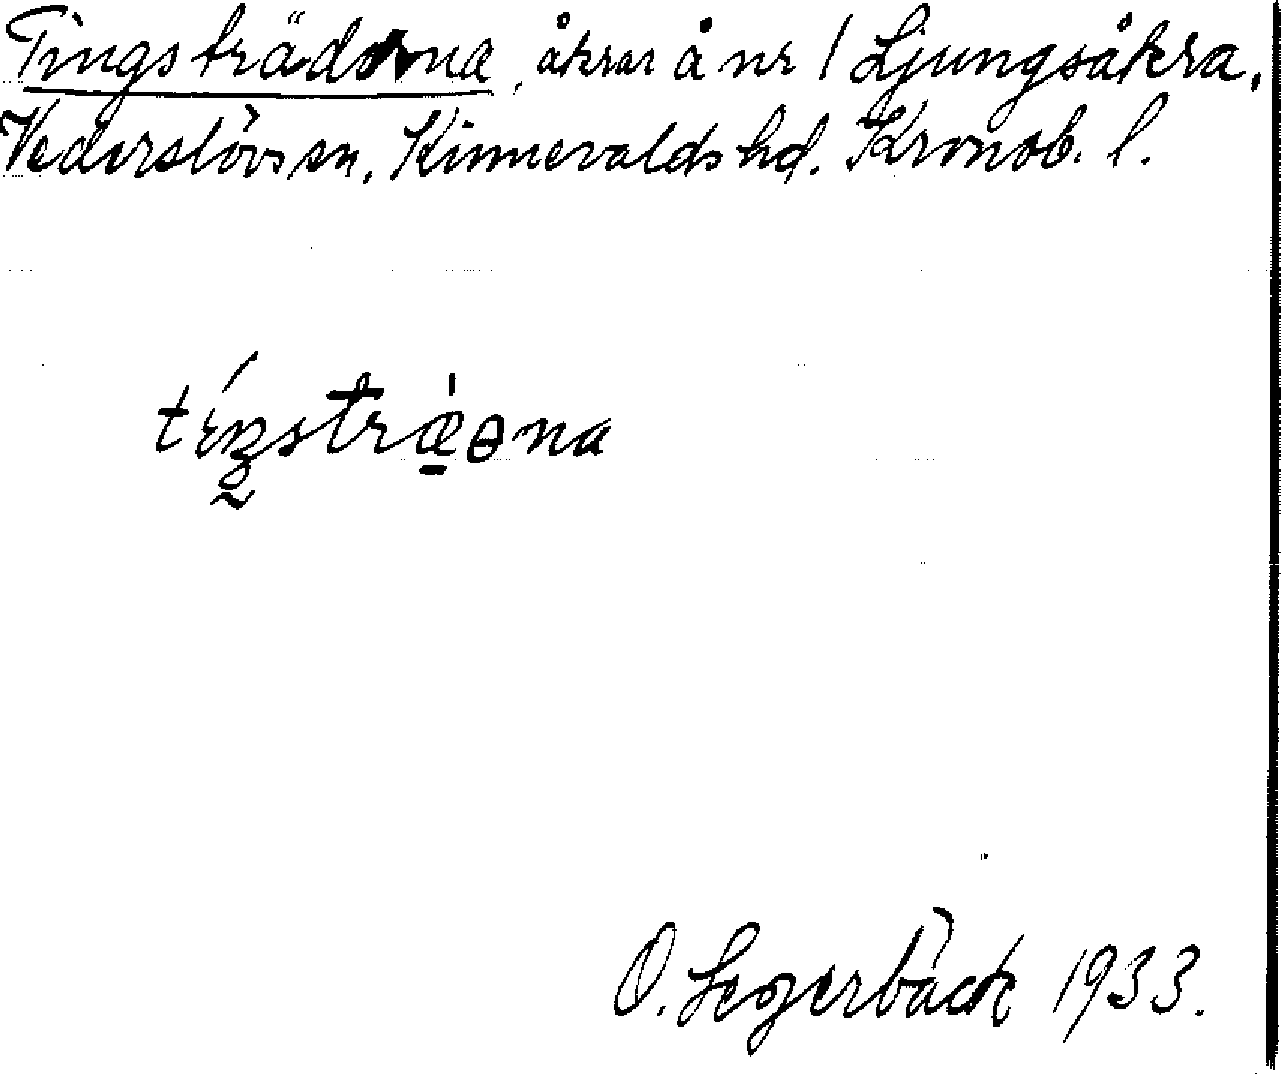 Tingsträdorna, åkrar å nr 1 Ljungsåkra,
Vederslövs sn, Kinnevalds hd. Kronob. l.
O. Segerbäck 1933.